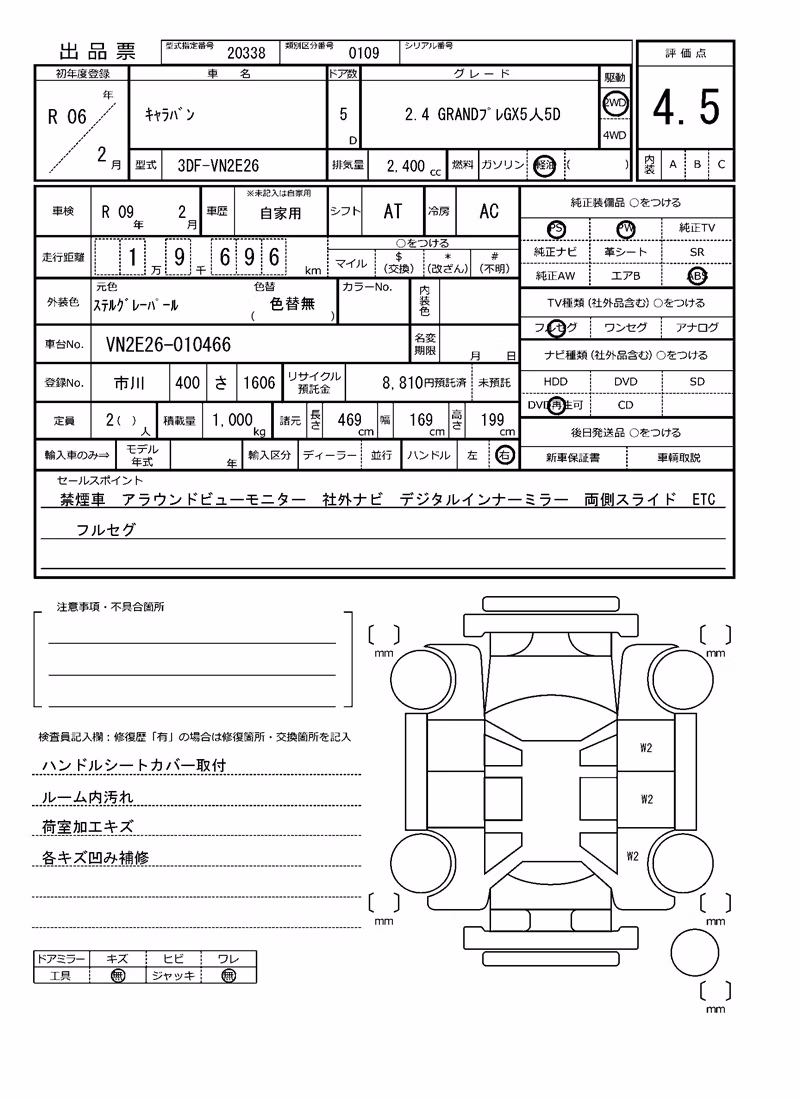 出品票 型式指定番号 20338 類別区分番号 0109 シリアル番号
初年度登録 車名 ドア数 グレード 駆動 評価点
R 06 年 2 月 ｷｬﾗﾊﾞﾝ 5 D 2.4 GRANDﾌﾟﾚGX5人5D 2WD 4WD 4.5
型式 3DF-VN2E26 排気量 2,400 cc 燃料 ガソリン 軽油 ( ) 内装 A B C
車検 R 09 年 2 月 車歴 ※未記入は自家用 自家用 シフト AT 冷房 AC
走行距離 1 万 9 千 6 9 6 km ○をつける
マイル $ (交換) * (改ざん) # (不明)
外装色 元色 ｽﾃﾙｸﾞﾚｰﾊﾟｰﾙ 色替 ( 色替無 ) カラーNo. 内装色
車台No. VN2E26-010466 名変期限 月 日
登録No. 市川 400 さ 1606 リサイクル預託金 8,810円預託済 未預託
定員 2( ) 人 積載量 1,000 kg 諸元 長さ 469 cm 幅 169 cm 高さ 199 cm
輸入車のみ⇒ モデル年式 年 輸入区分 ディーラー 並行 ハンドル 左 右
純正装備品 ○をつける
PS PW 純正TV
純正ナビ 革シート SR
純正AW エアB ABS
TV種類(社外品含む)○をつける
フルセグ ワンセグ アナログ
ナビ種類(社外品含む)○をつける
HDD DVD SD
DVD再生可 CD
後日発送品 ○をつける
新車保証書 車輌取説
セールスポイント
禁煙車 アラウンドビューモニター 社外ナビ デジタルインナーミラー 両側スライド ETC
フルセグ
注意事項・不具合箇所
検査員記入欄：修復歴「有」の場合は修復箇所・交換箇所を記入
ハンドルシートカバー取付
ルーム内汚れ
荷室加工キズ
各キズ凹み補修
ドアミラー キズ ヒビ ワレ
工具 無 ジャッキ 無
mm mm
W2
W2
W2
mm mm
mm